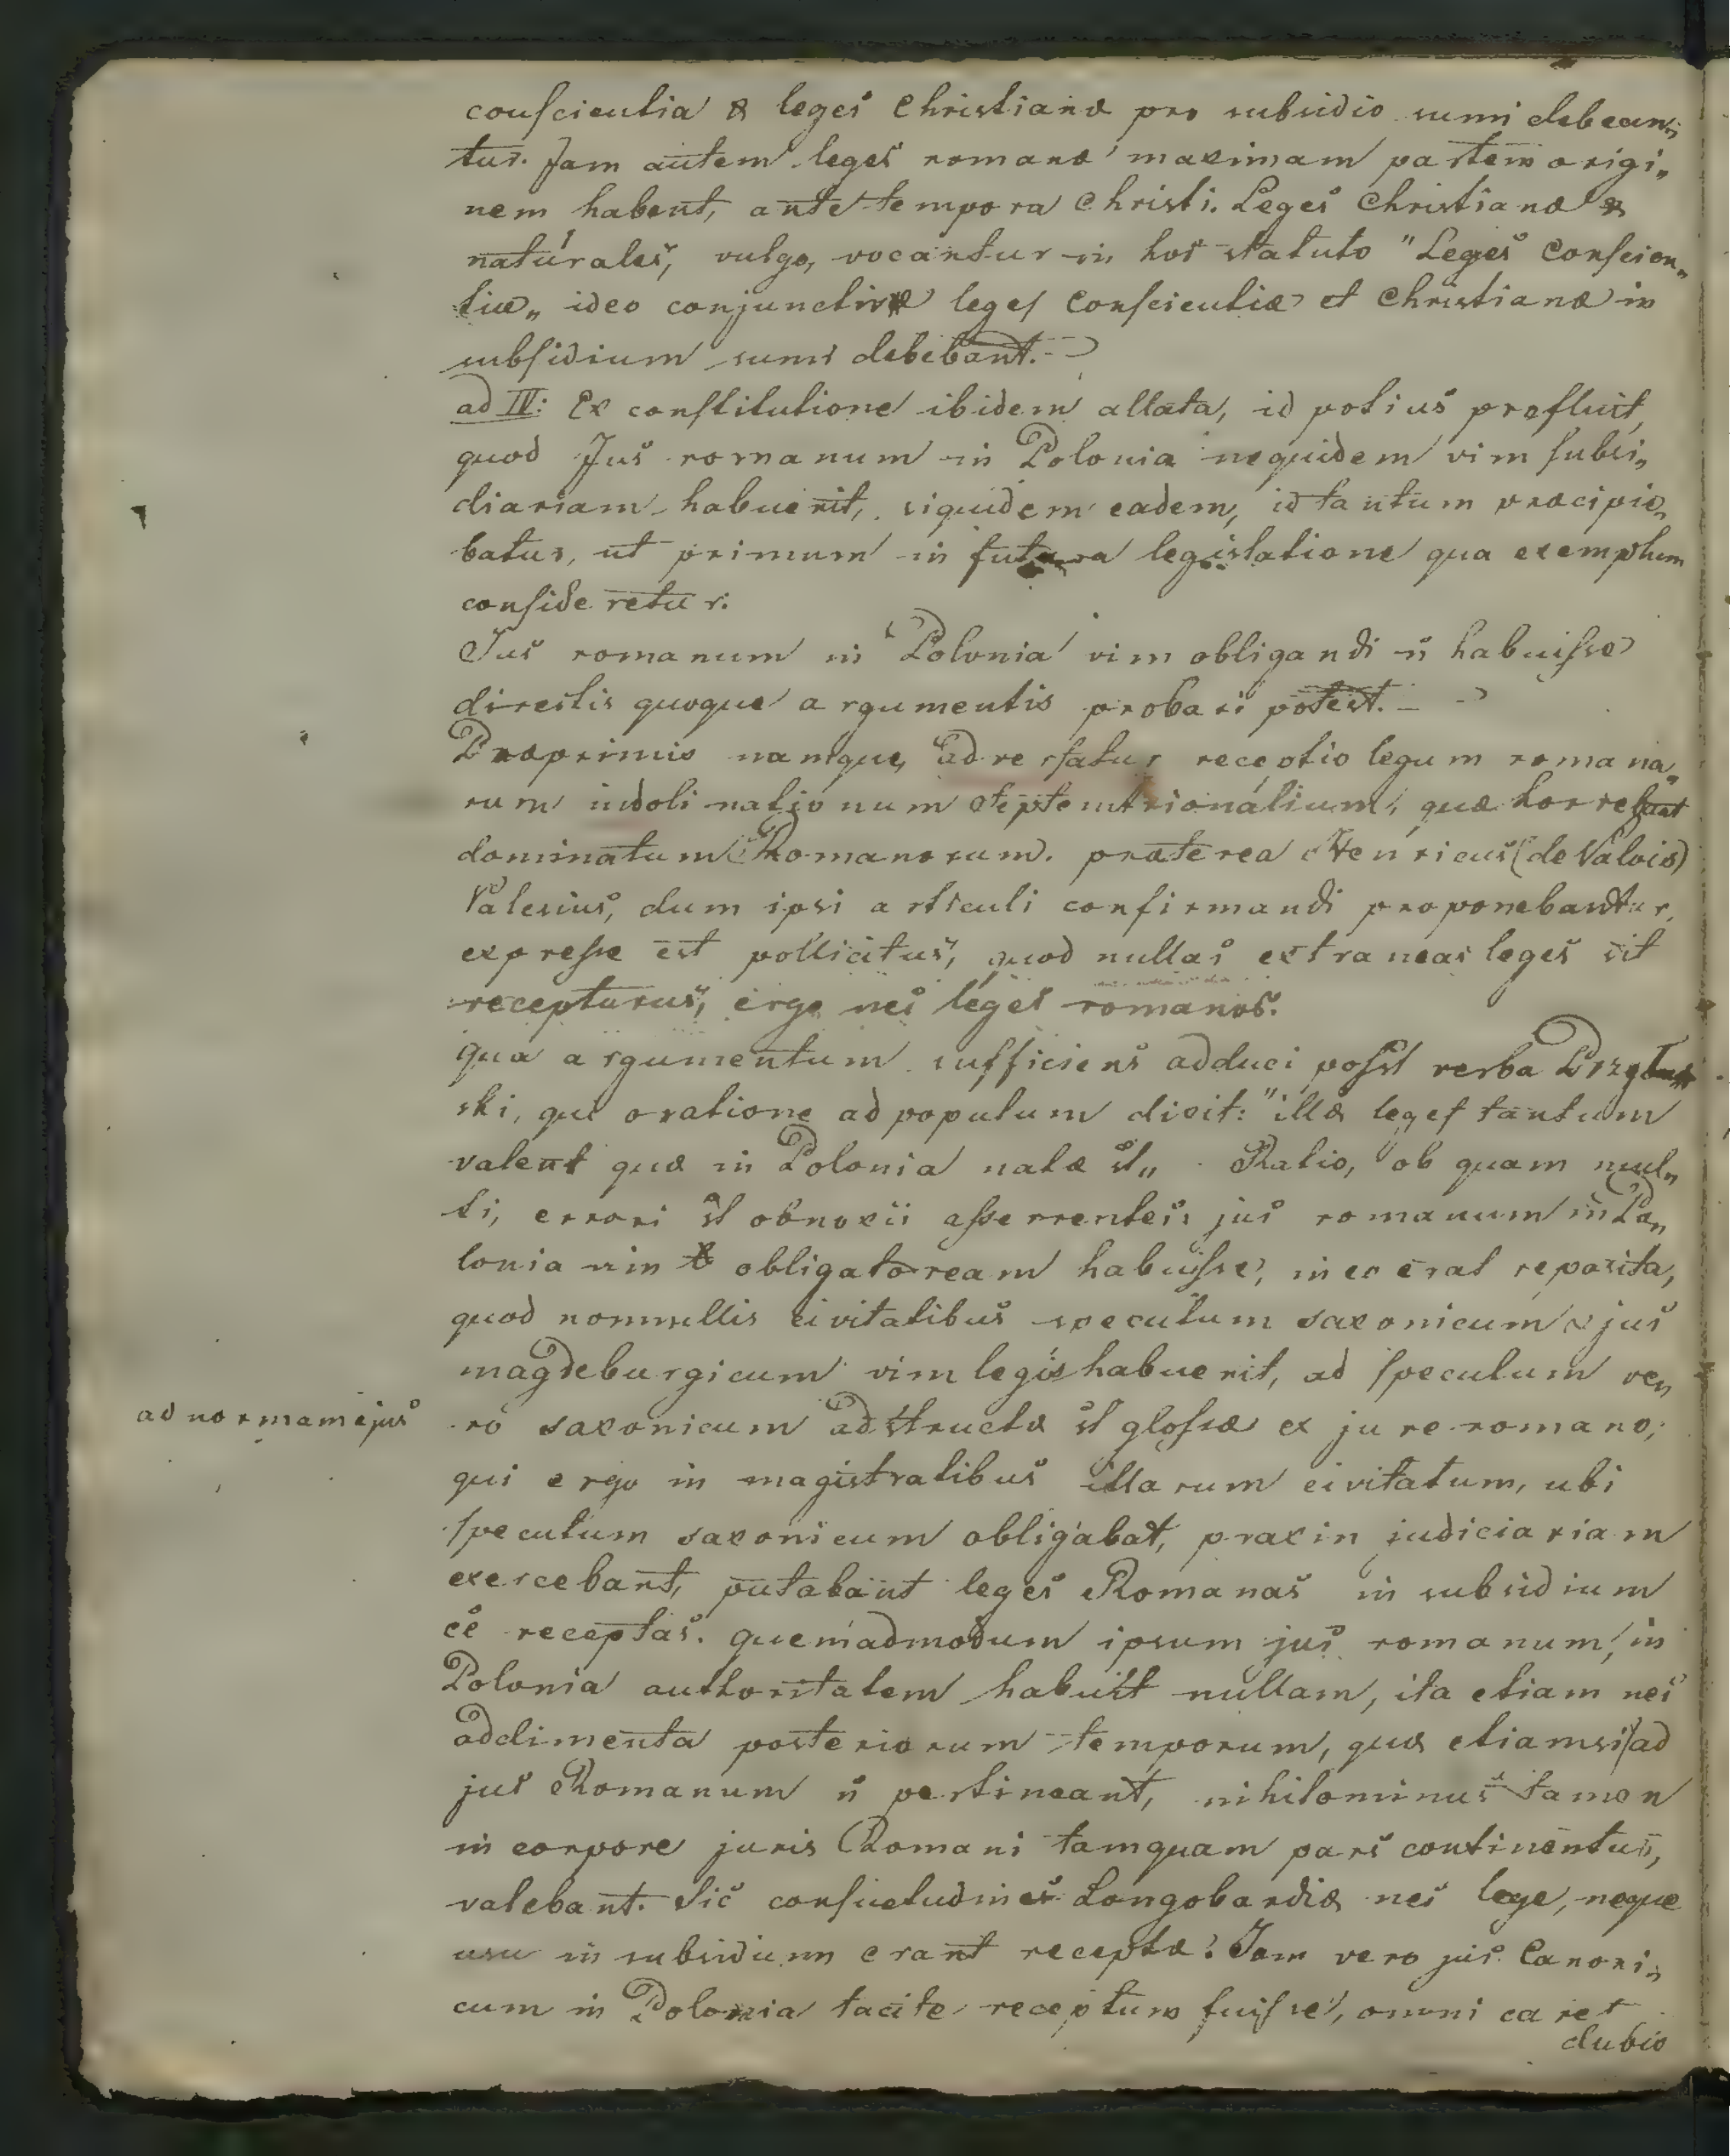 conscientia & leges Christianæ pro subsidio sumi debean„
tur. Jam autem leges romanæ maximam partem origi„
nem habent, ante tempora Christi. Leges Christianæ &
naturales, vulgo, vocantur in hoc statuto "Leges Conscien„
tiæ„ ideo conjunctivæ leges Conscientiæ et Christianæ in
subsidium sumi debebant. –
ad IV: Ex constitutione ibidem allata, id potius profluit,
quod Jus romanum in Polonia nequidem vim subsi„
diariam habuerit, siquidem eadem, id tantum præcipie„
batur, ut primum in futura legislatione qua exemplum
consideretur.
Jus romanum in Polonia vim obligandi ñ habuisse
directis quoque argumentis probari potest. –
Præprimis namque, adversatur receptio legum romana„
rum indoli nationum Septemtrionalium, quæ horrebant
dominatum Romanorum. præterea Henricus (de Valois)
Valesius, dum ipsi articuli confirmandi proponebantur,
expresse est pollicitus, quod nullas extraneas leges sit
recepturus, ergo nec leges romanas.
qua argumentum sufficiens adduci possט verba Przyłus
ski, qui oratione ad populum dixit: "illæ leges tantum
valent quæ in Polonia natæ st„ . Ratio, ob quam mul„
ti, errori st obnoxii asserentes, jus romanum in Po„
lonia vim obligatoream habuisse, in eo erat reposita,
quod nonnullis civitatibus speculum saxonicum & jus
magdeburgicum vim legis habuerit, ad speculum ve„
ad normam ejus
ro saxonicum adstructæ st glossæ ex jure romano;
qui ergo in magistratibus illarum civitatum, ubi
speculum saxonicum obligabat, praxin judiciariam
exercebant, putabant leges Romanas in subsidium
ēē receptas. quemadmodum ipsum jus romanum, in
Polonia authoritatem habuit nullam, ita etiam nec
addimenta posteriorum temporum, quæ etiamsi ad
jus Romanum ñ pertineant, nihilominus tamen
in corpore juris Romani tamquam pars continentur,
valebant. Sic consuetudines Longobardiæ nec lege, neque
usu in subsidium erant receptæ. Jam vero jus Canoni„
cum in Polonia tacite receptum fuisse, omni caret
dubio